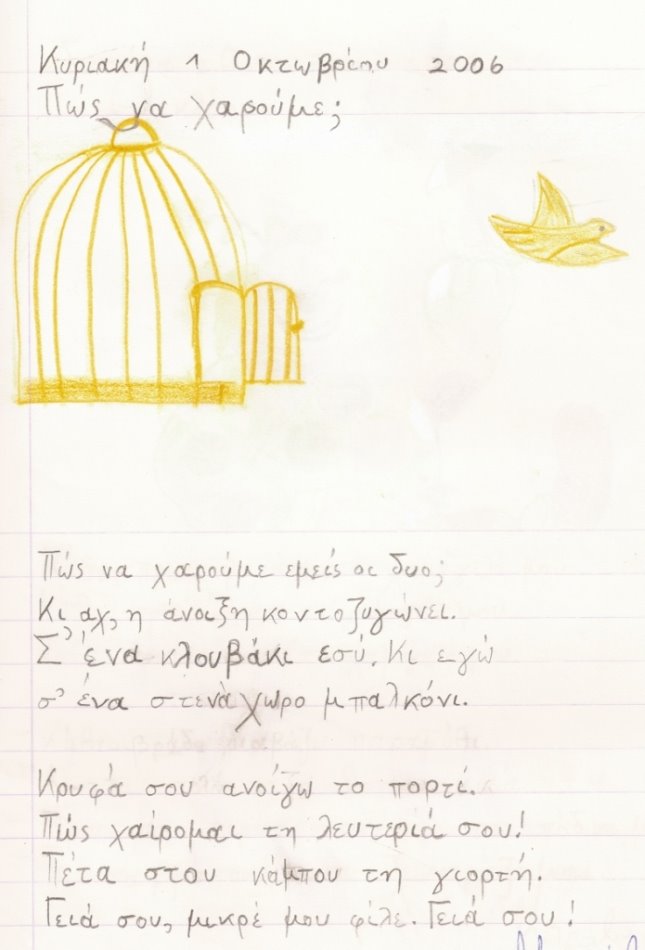 Κυριακή 1 Οκτωβρίου 2006
Πώς να χαρούμε;
Πώς να χαρούμε εμείς οι δυο;
Κι αχ, η άνοιξη κοντοζυγώνει.
Σ' ένα κλουβάκι εσύ. Κι εγώ
σ' ένα στενάχωρο μπαλκόνι.
Κρυφά σου ανοίγω το πορτί.
Πώς χαίρομαι τη λευτεριά σου!
Πέτα στου κάμπου τη γιορτή.
Γειά σου, μικρέ μου φίλε. Γειά σου!